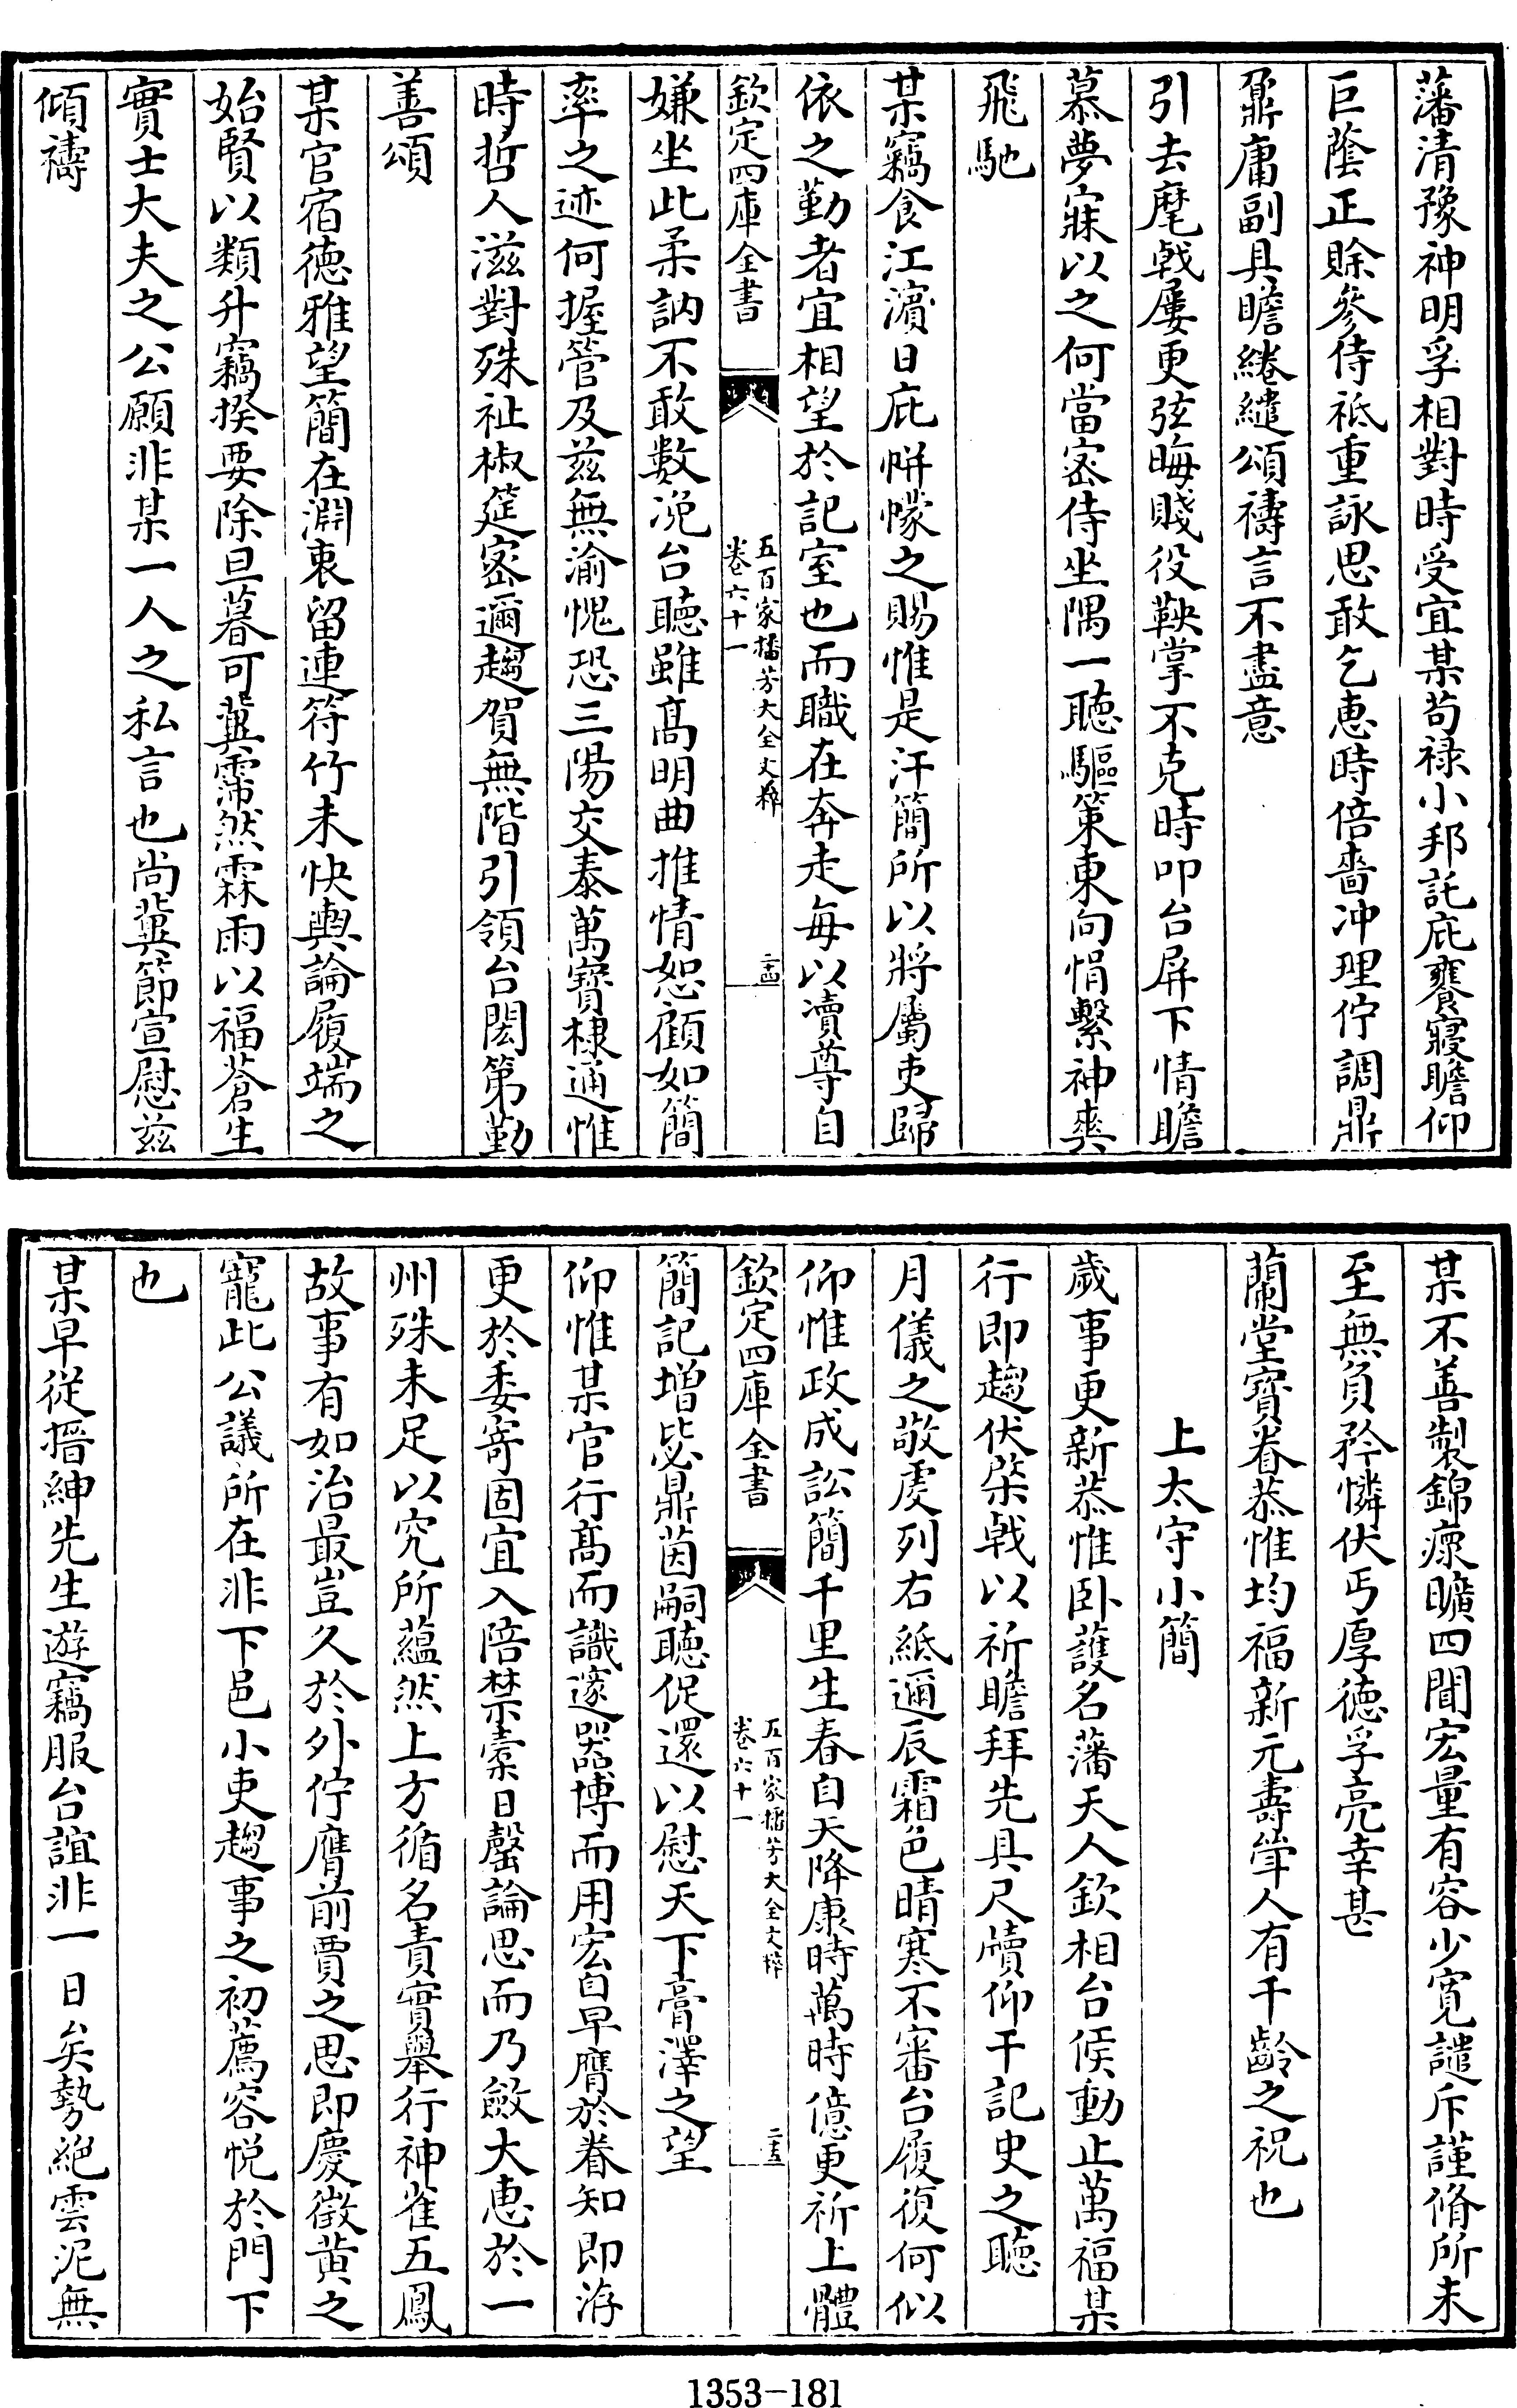 藩清豫神明孚相對時受宜某苟禄小邦託庇饔寢瞻仰
巨蔭正賖參侍祗重詠思敢乞惠時倍嗇冲理佇調鼎
鼐庸副具瞻綣繾頌禱言不盡意
引去麾㦸屢更弦晦賤役鞅掌不克時叩台屏下情瞻
慕夢寐以之何當密侍坐隅一聽驅策東向悁繫神爽
飛馳
某竊食江濵日庇帡幪之賜惟是汗簡所以將屬吏歸
依之勤者宜相望於記室也而職在奔走每以瀆尊自
欽定四庫全書
五百家播芳大全文粹
卷六十一
二十四
嫌坐此柔訥不敢數凂台聽雖髙明曲推情恕顧如簡
率之迹何握管及兹無渝愧恐三陽交泰萬寳棣通惟
時哲人滋對殊祉椒筵密邇趨賀無階引領台閎第勤
善頌
某官宿徳雅望簡在淵衷留連符竹未快輿論履端之
始賢以類升竊揆要除旦暮可冀霈然霖雨以福蒼生
實士大夫之公願非某一人之私言也尚冀節宣慰兹
傾禱
某不善製錦瘝曠四聞宏量有容少寛譴斥謹脩所未
至無負矜憐伏丐厚徳孚亮幸甚
蘭堂寳眷恭惟均福新元壽耸人有千齡之祝也
上太守小簡
歲事更新恭惟卧䕶名藩天人欽相台候動止萬福某
行即趨伏棨㦸以祈瞻拜先具尺牘仰干記史之聽
月儀之敬䖍列右紙邇辰霜色晴寒不審台履復何似
仰惟政成訟簡千里生春自天降康時萬時億更祈上體
欽定四庫全書
五百家播芳大全文粹
卷六十一
二十五
簡記增毖鼎茵嗣聽促還以慰天下膏澤之望
仰惟某官行髙而識邃器博而用宏自早膺於眷知即洊
更於委寄固宜入陪禁橐日罄論思而乃斂大惠於一
州殊未足以究所藴然上方循名責實舉行神雀五鳳
故事有如治最豈久於外佇膺前賈之思即慶徵黄之
寵此公議所在非下邑小吏趨事之初薦容悦於門下
也
某早從搢紳先生遊竊服台誼非一日矣勢絶雲泥無
1353-181